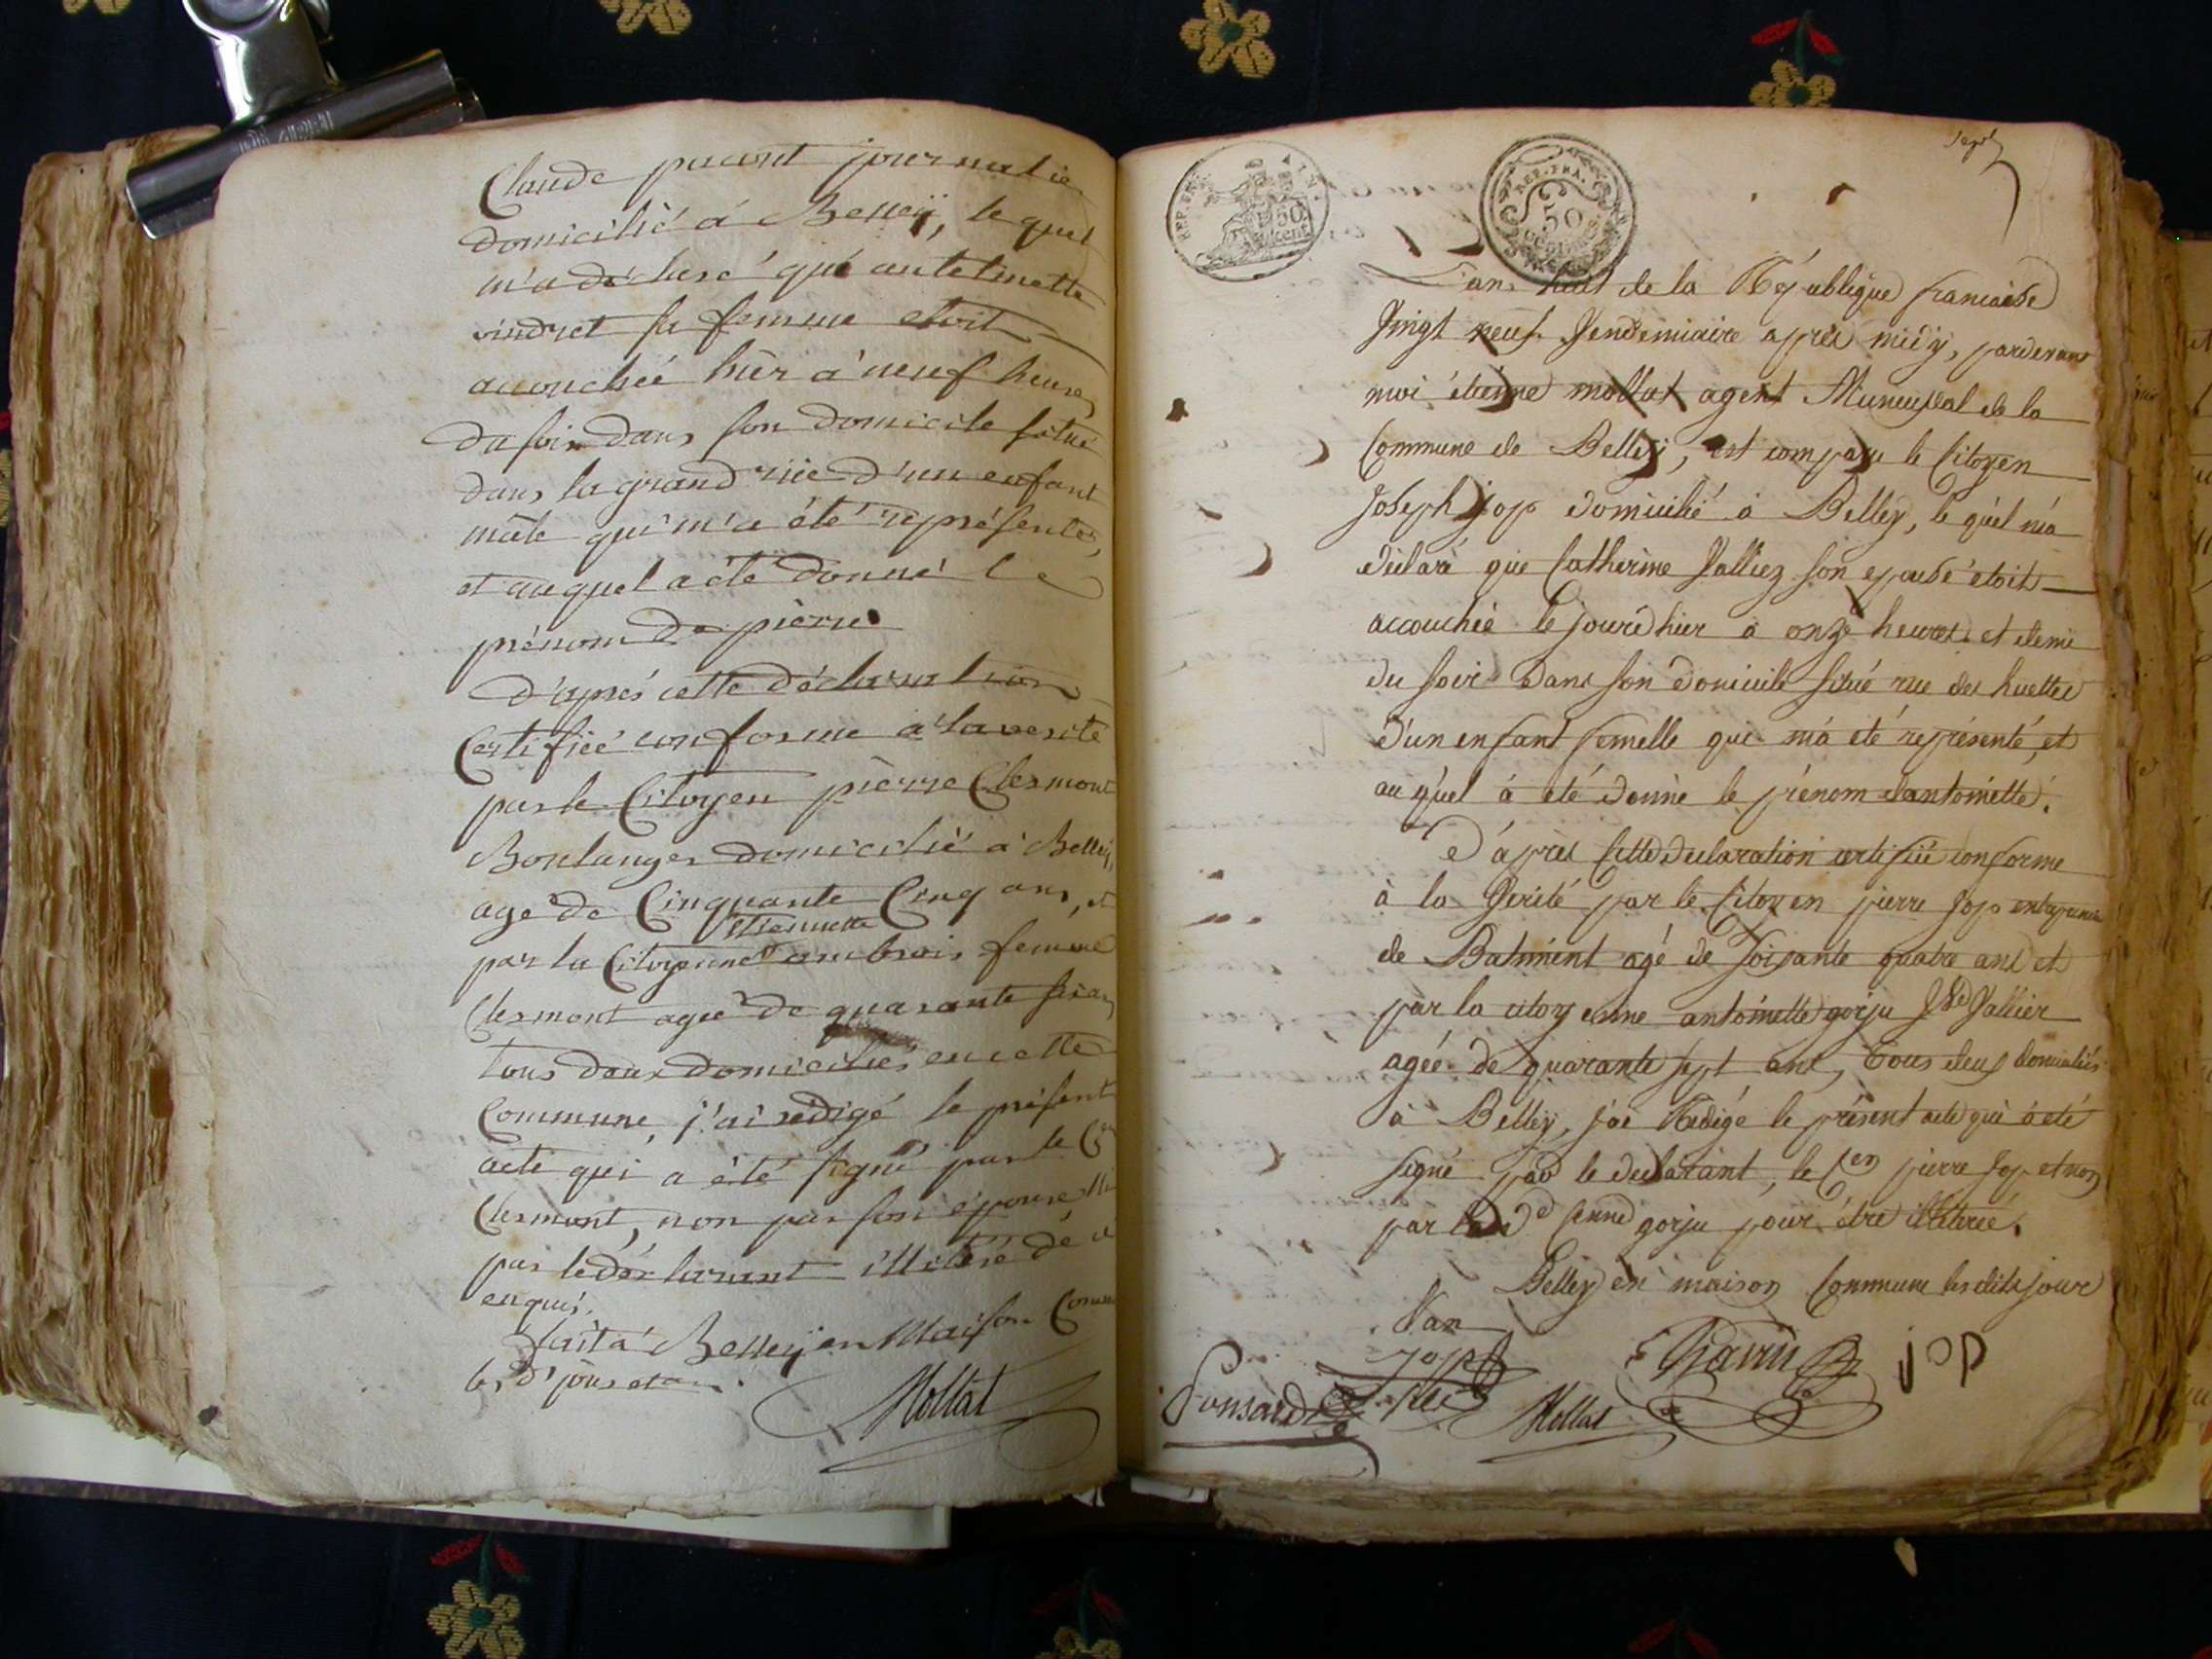 Claude pacant journalie
domicilié á Belleÿ, le quel
m'a déclaré qué antelmette
vindret sa femme etoit
accouchée hièr á neuf heures
du soir dans son domicile situé
dans la grand rüe d'un enfant
mâle qui m'a été représenté,
et auquel a été donné le
prénom de pièrre
d'après cette déclaration
Certifiée conforme a la verité
par le Citoyen pièrre Clermont
Boulanger domicilié a Belleÿ,
age de Cinquante Cinq ans, et
etiennette
par la Citoyenne ambrois femme
Clermont agée de quarante six ans
tous deux domiciliés en cette
Commune, j'ai rédigé le présent
acte qui a été signé par le Cen
Clermont, non par son épouse, ni
par le déclarant illitéré de ce
enquis.
fait a Belleÿ en Maison Commune
les d. jour et an.
Mollat
sept
REP. FRA.
50
cent.
REP. FRA.
50
CENTIMES
L'an huit de la République francaise
Vingt neuf Vendemiaire après midÿ, pardevant
moi étienne mollat agent Municipal de la
Commune de Belleÿ, est comparu le Citoyen
Joseph jop domicilié à Belley, le quel m'a
déclaré que Catherine Valliez son epouse étoit
accouchée le jourd'hier à onze heures et demie
du soir dans son domicile situé rue des huettes
d'un enfant femelle qui m'a eté représenté, et
au quel à été donné le prénom d'antoinette.
D'après Cette declaration certifiée conforme
à la Verité par le Citoyen pierre Jop entrepreneur
de Batiment agé de soixante quatre ans et
par la citoyenne antoinette gorju Vallier
agée de quarante sept ans, tous deux domiciliés
à Belleÿ, j'ai Redigé le présent acte qui à eté
signé par le declarant, le Cen pierre Jop et non
par la d. Cenne gorju pour étre illiterée.
Belley en maison Commune les dits jour
et an
jop
Ponsard
Mollat
jop